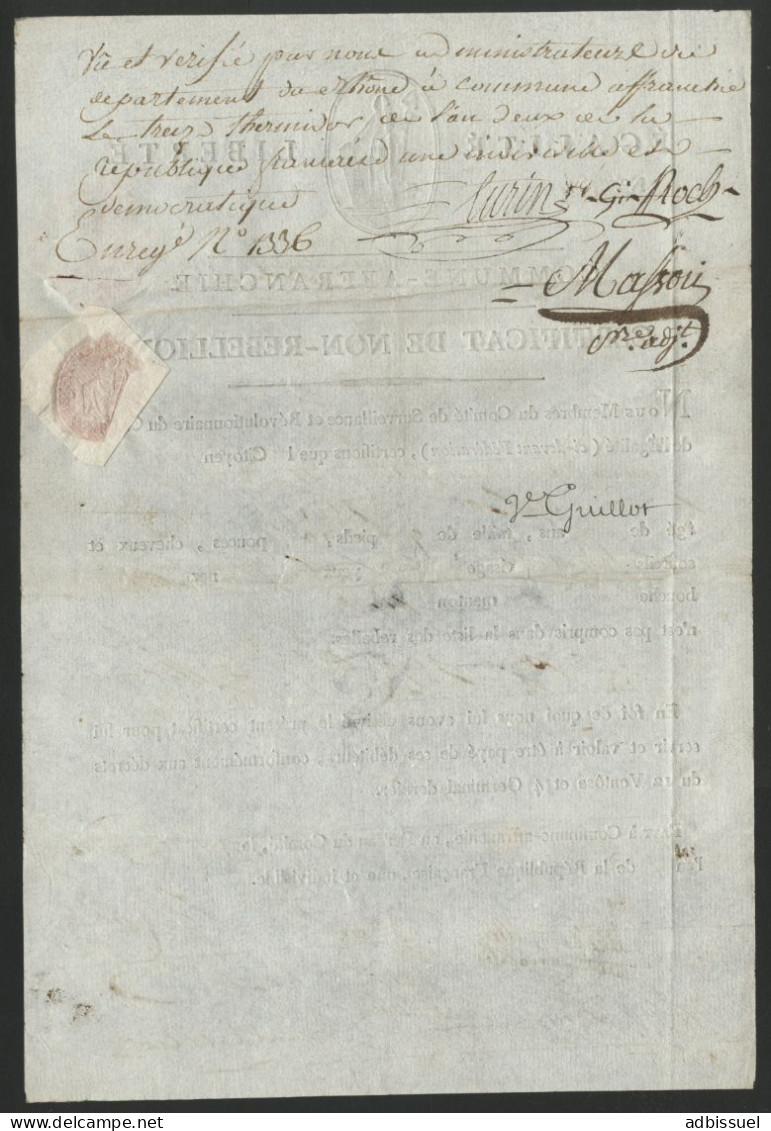 Vû et verifié par nous administrateurs du
departement du Rhone à commune affranchie
Le treize thermidor de l'an deux de la
republique francaise une indivisible et
democratique
Enregé No 1336
Turin Gi Roch
Masson
sre adjt
ÉGALITÉ LIBERTÉ
COMMUNE-AFFRANCHIE
CERTIFICAT DE NON-REBELLION
Nous Membres du Comité de Surveillance et Révolutionnaire du
de l'Egalité (ci-devant Fédération), certifions que l Citoyen
Ve Guillot
âgé de ans, taille de pieds, pouces, cheveux et
sourcils visage nez
bouche menton
n'est pas compris dans la liste des rebelles.
En foi de quoi nous lui avons délivré le présent certificat, pour lui
servir et valoir à être payé de ses débiteurs, conformément aux décrets
du 12 Ventôse et 4 Germinal dernier.
Fait à Commune-affranchie, en du Comité, le
l'an de la République Française, une et indivisible.
adbissuel